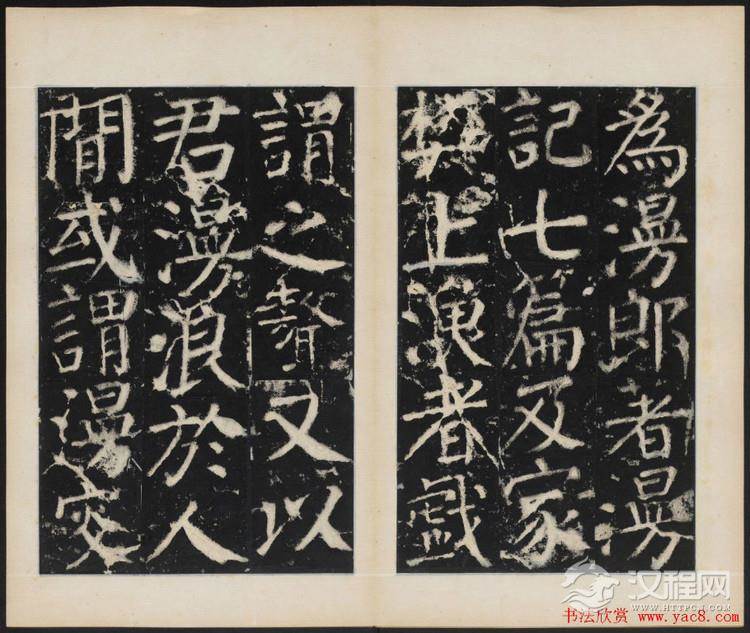 為漫郎著漫
記七篇及家
樊上漁者戲
謂之聱又以
君漫浪於人
間或謂漫叟
汉程网
HTTPCN.COM
书法欣赏 www.yac8.com